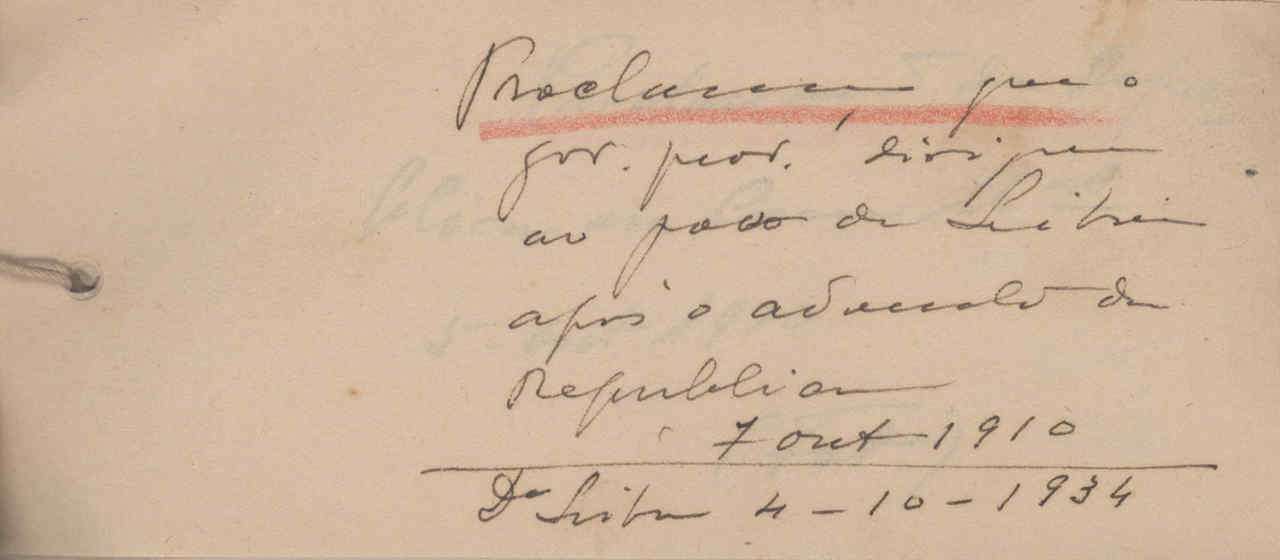 Proclamação que o
gov. prov. dirigiu
ao povo de Lisboa
após o advento da
Republica
7 out 1910
Dº Lisboa 4-10-1934